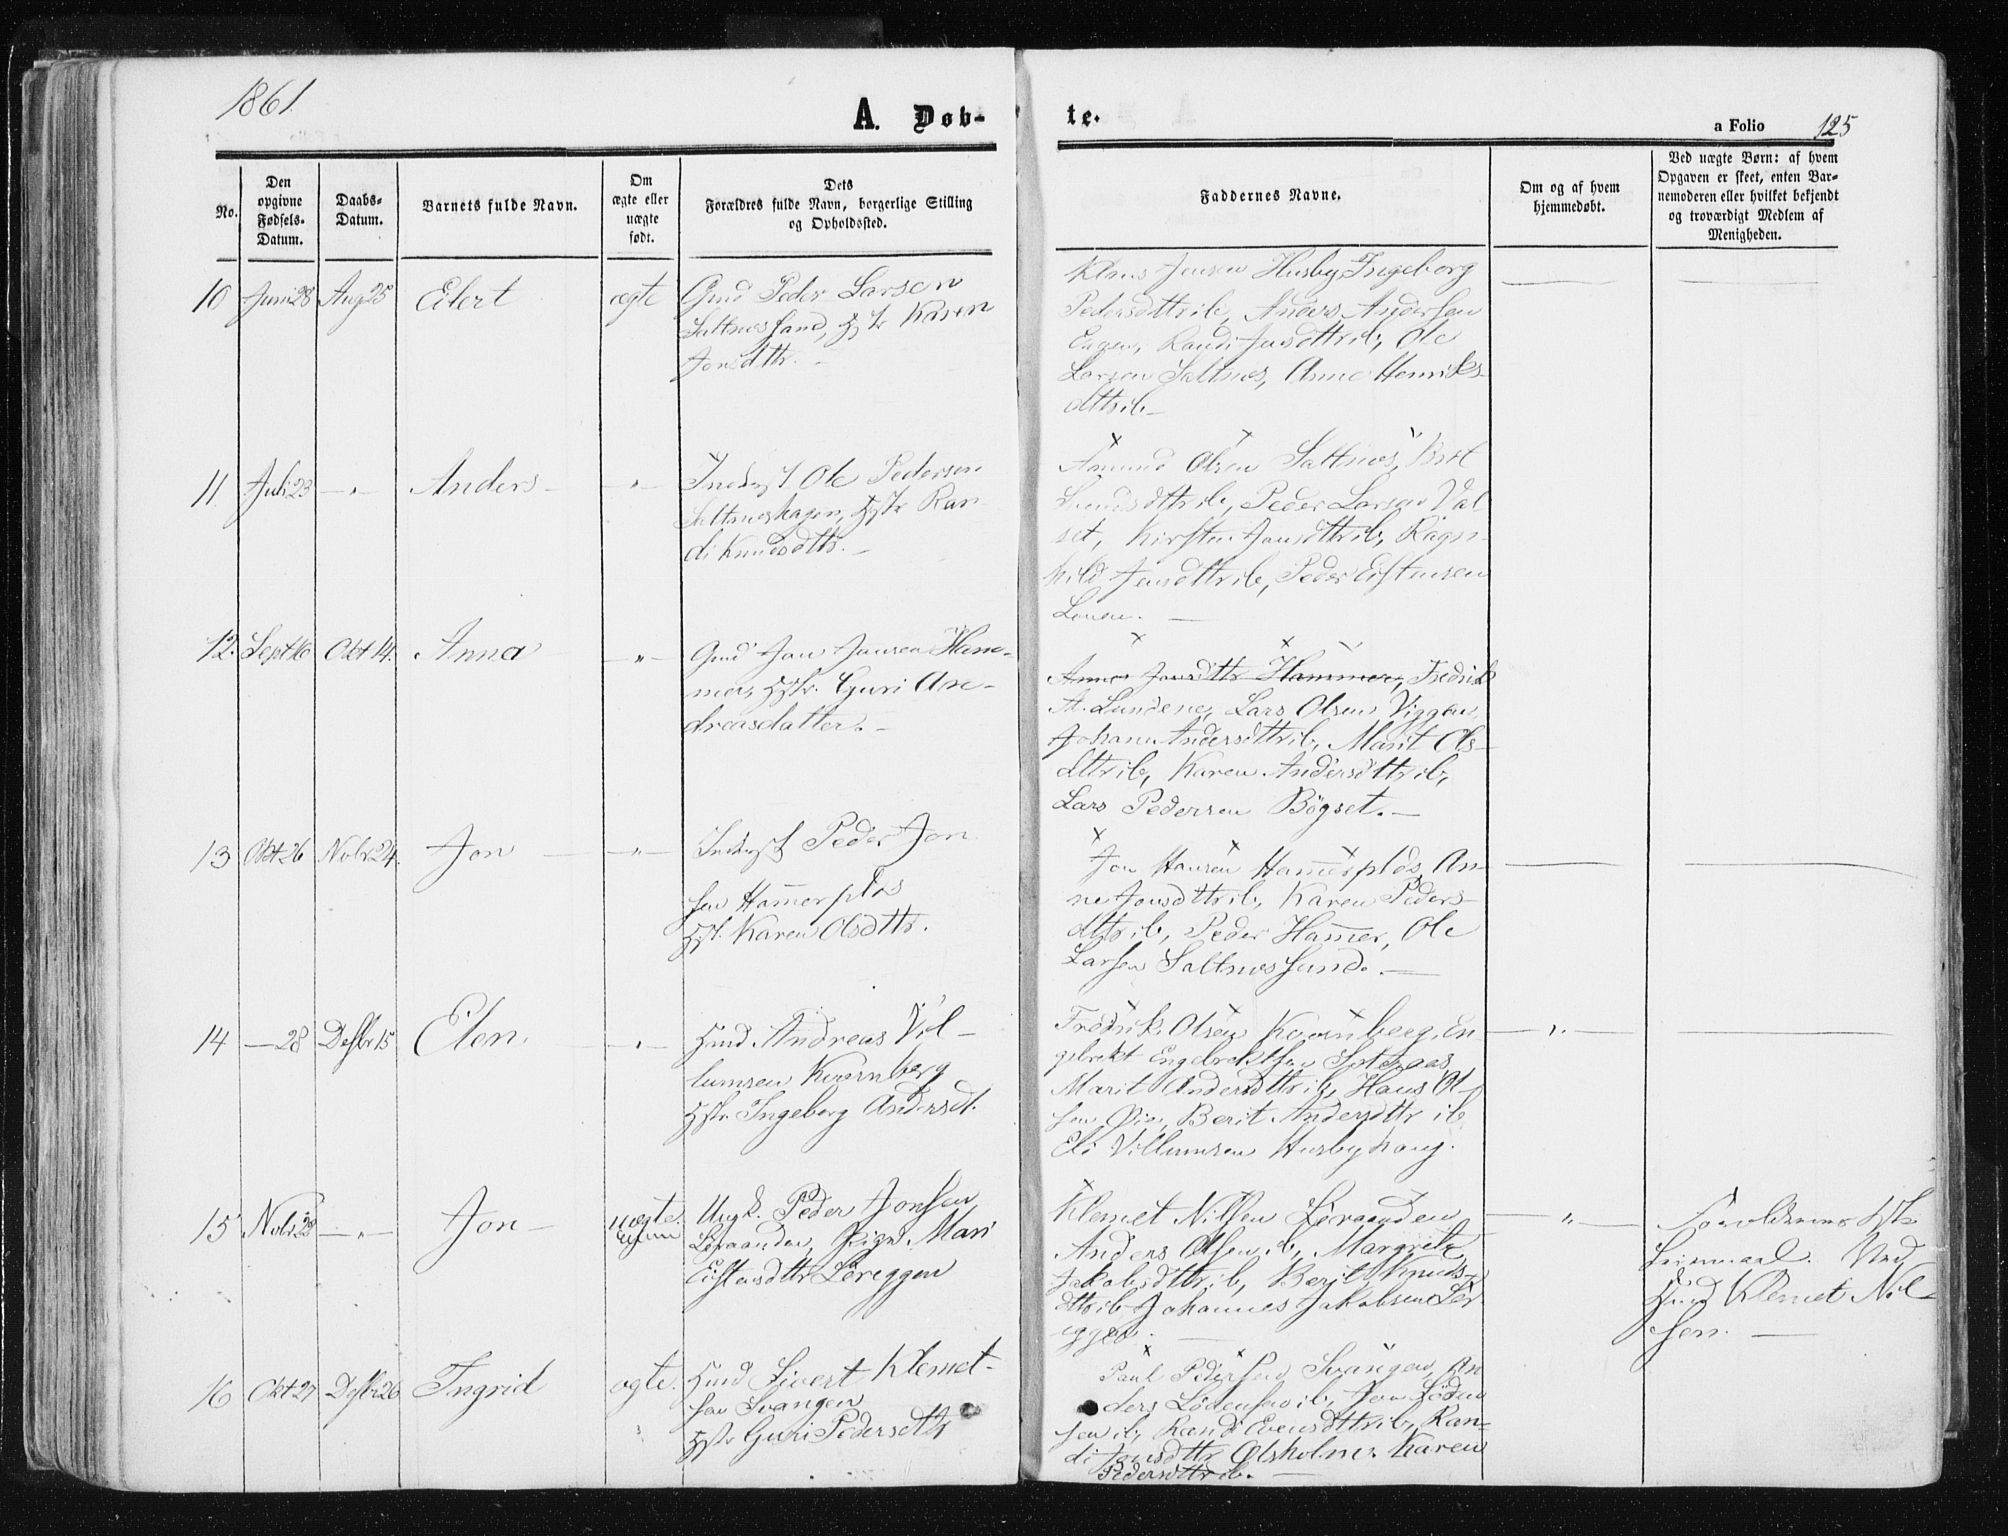 1861.
A. Døb-
te.
a Folio 125
No.
Den
opgivne
Fødsels-
Datum.
Daabs-
Datum.
Barnets fulde Navn.
Om
ægte eller
uægte
født.
Dets
Forældres fulde Navn, borgerlige Stilling
og Opholdssted.
Faddernes Navne.
Om og af hvem
hjemmedøbt.
Ved uægte Børn: af hvem
Opgaven er skeet, enten Bar-
nemoderen eller hvilket bekjendt
og troværdigt Medlem af
Menigheden.
10 Juni 28 Aug 25 Eilert ægte
Gmd Peder Larsen
Saltnessand, Karen
Jonsdttr. -
Jensen Husby, Ingeborg
Pedersdttr ib, Anders Andersen
Randi Jonsdttr ib, Ole
Larsen Saltnes, Anne Henriks-
dttr ib -
11. Juli 23 -"- Anders - -"-
Ole Pedersen
Ran-
di Knudsdttr. -
Amund Olsen Saltnes, Brit
dttr ib, Peder Larsen Val-
set, Kirsten Jonsdttr ib, Ragn-
hild Jensdttr ib, Peder Eistensen
12. Sept 16 Okt 14. Anna -"-
Gmd Jon Jensen Ham-
mer, Hstr. Guri An-
dreasdatter. -
Anne Jonsdttr Hammer, Fredrik
A. Lundene, Lars Olsen Viggen,
Johan Andersdttr ib, Marit Ols-
dttr ib, Karen Andersdttr ib,
Lars Pedersen Bögset. -
13 Okt 26 Nobr 24. Jon -"-
Inderst Peder Jon
sen Ham̄erplds
Hst. Karen Olsdttr.
Jon Hansen Ham̄erplds, An-
ne Jonsdttr ib, Karen Peders-
dttr ib, Peder Ham̄er, Ole
Larsen Saltnessand. -
14 - 28 Desbr 15 Elen. -"-
Hmd Andreas Vil-
lumsen Kvernberg
Hstr Ingeborg Andersdt.
Fredrik Olsen Kvernberg, En-
gebrekt Engebrektsen
Marit Andersdttr ib, Hans Ol-
sen Øie, Berit Andersdttr ib
Eli Villumsen Husbyhaug.
-"-
15 Nobr 28 -"- Jon - uægte
Ungk. Peder Jonsen
Leraanden, Pige Mari
Eistensdttr Lereggen
Klemet Nilsen Leraanden
Anders Olsen ib, Margrete
Jakobsdttr ib, Berit Knuds-
dttr ib Johannes Jakobsen Ler-
eggen. -
-"-
Forældrenes 1ste
Leiermaal. Ved
Hmd Klemet Nil-
sen. -
16 Okt 27 Desbr 26 Ingrid ægte.
Hmd Sivert Klemet-
sen Svangen
Hstr Guri Pedersdttr
Paul Pedersen Svangen, An-
ders Lodensen ib, Jon Loden-
sen ib, Randi Evensdttr ib, Ran-
di Jonsdttr Ølsholm. Karen
Pedersdttr ib. -